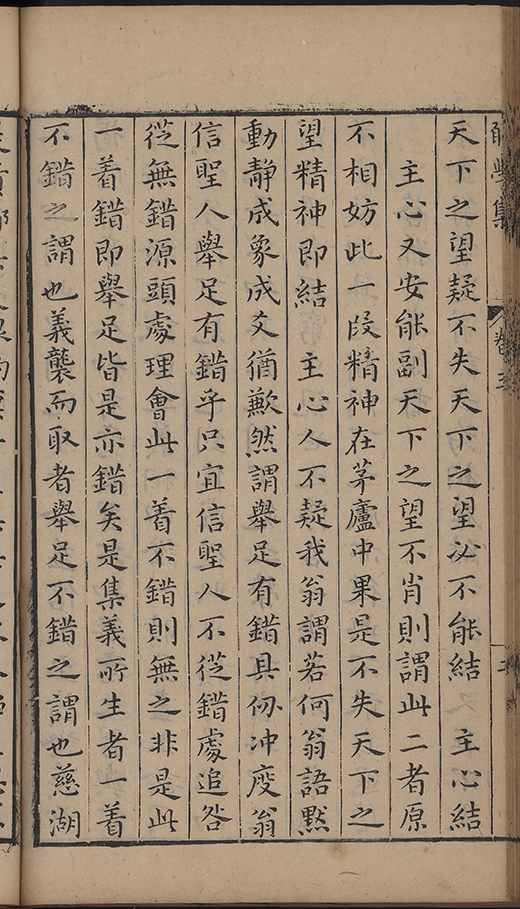 集
卷五
天下之望疑不失天下之望必不能結　主心結
主心又安能副天下之望不肖則謂此二者原
不相妨此一段精神在茅廬中果是不失天下之
望精神即結　主心人不疑我翁謂若何翁語默
動靜成象成爻猶歉然謂舉足有錯具仞冲度翁
信聖人舉足有錯乎只宜信聖人不從錯處追咎
從無錯源頭處理會此一着不錯則無之非是此
一着錯即舉足皆是亦錯矣是集義所生者一着
不錯之謂也義襲而取者舉足不錯之謂也慈湖